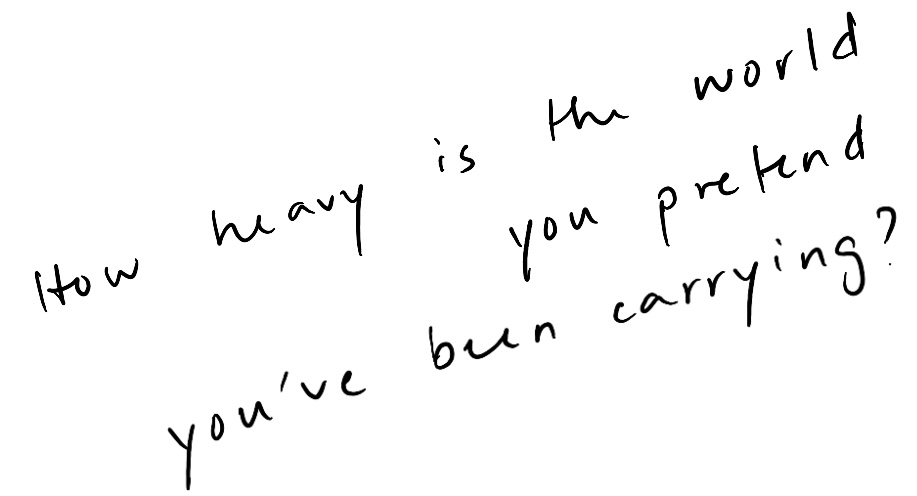 How heavy is the world
you pretend
you've been carrying?